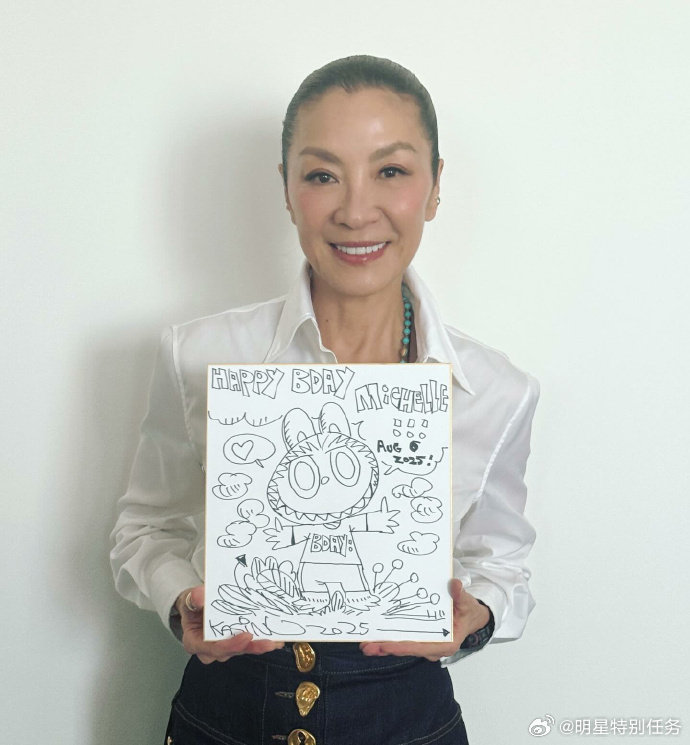 HAPPY BDAY
MiCHELLE
!!!
AUG 6
2025!
BDAY!
KASiNG 2025
@明星特别任务